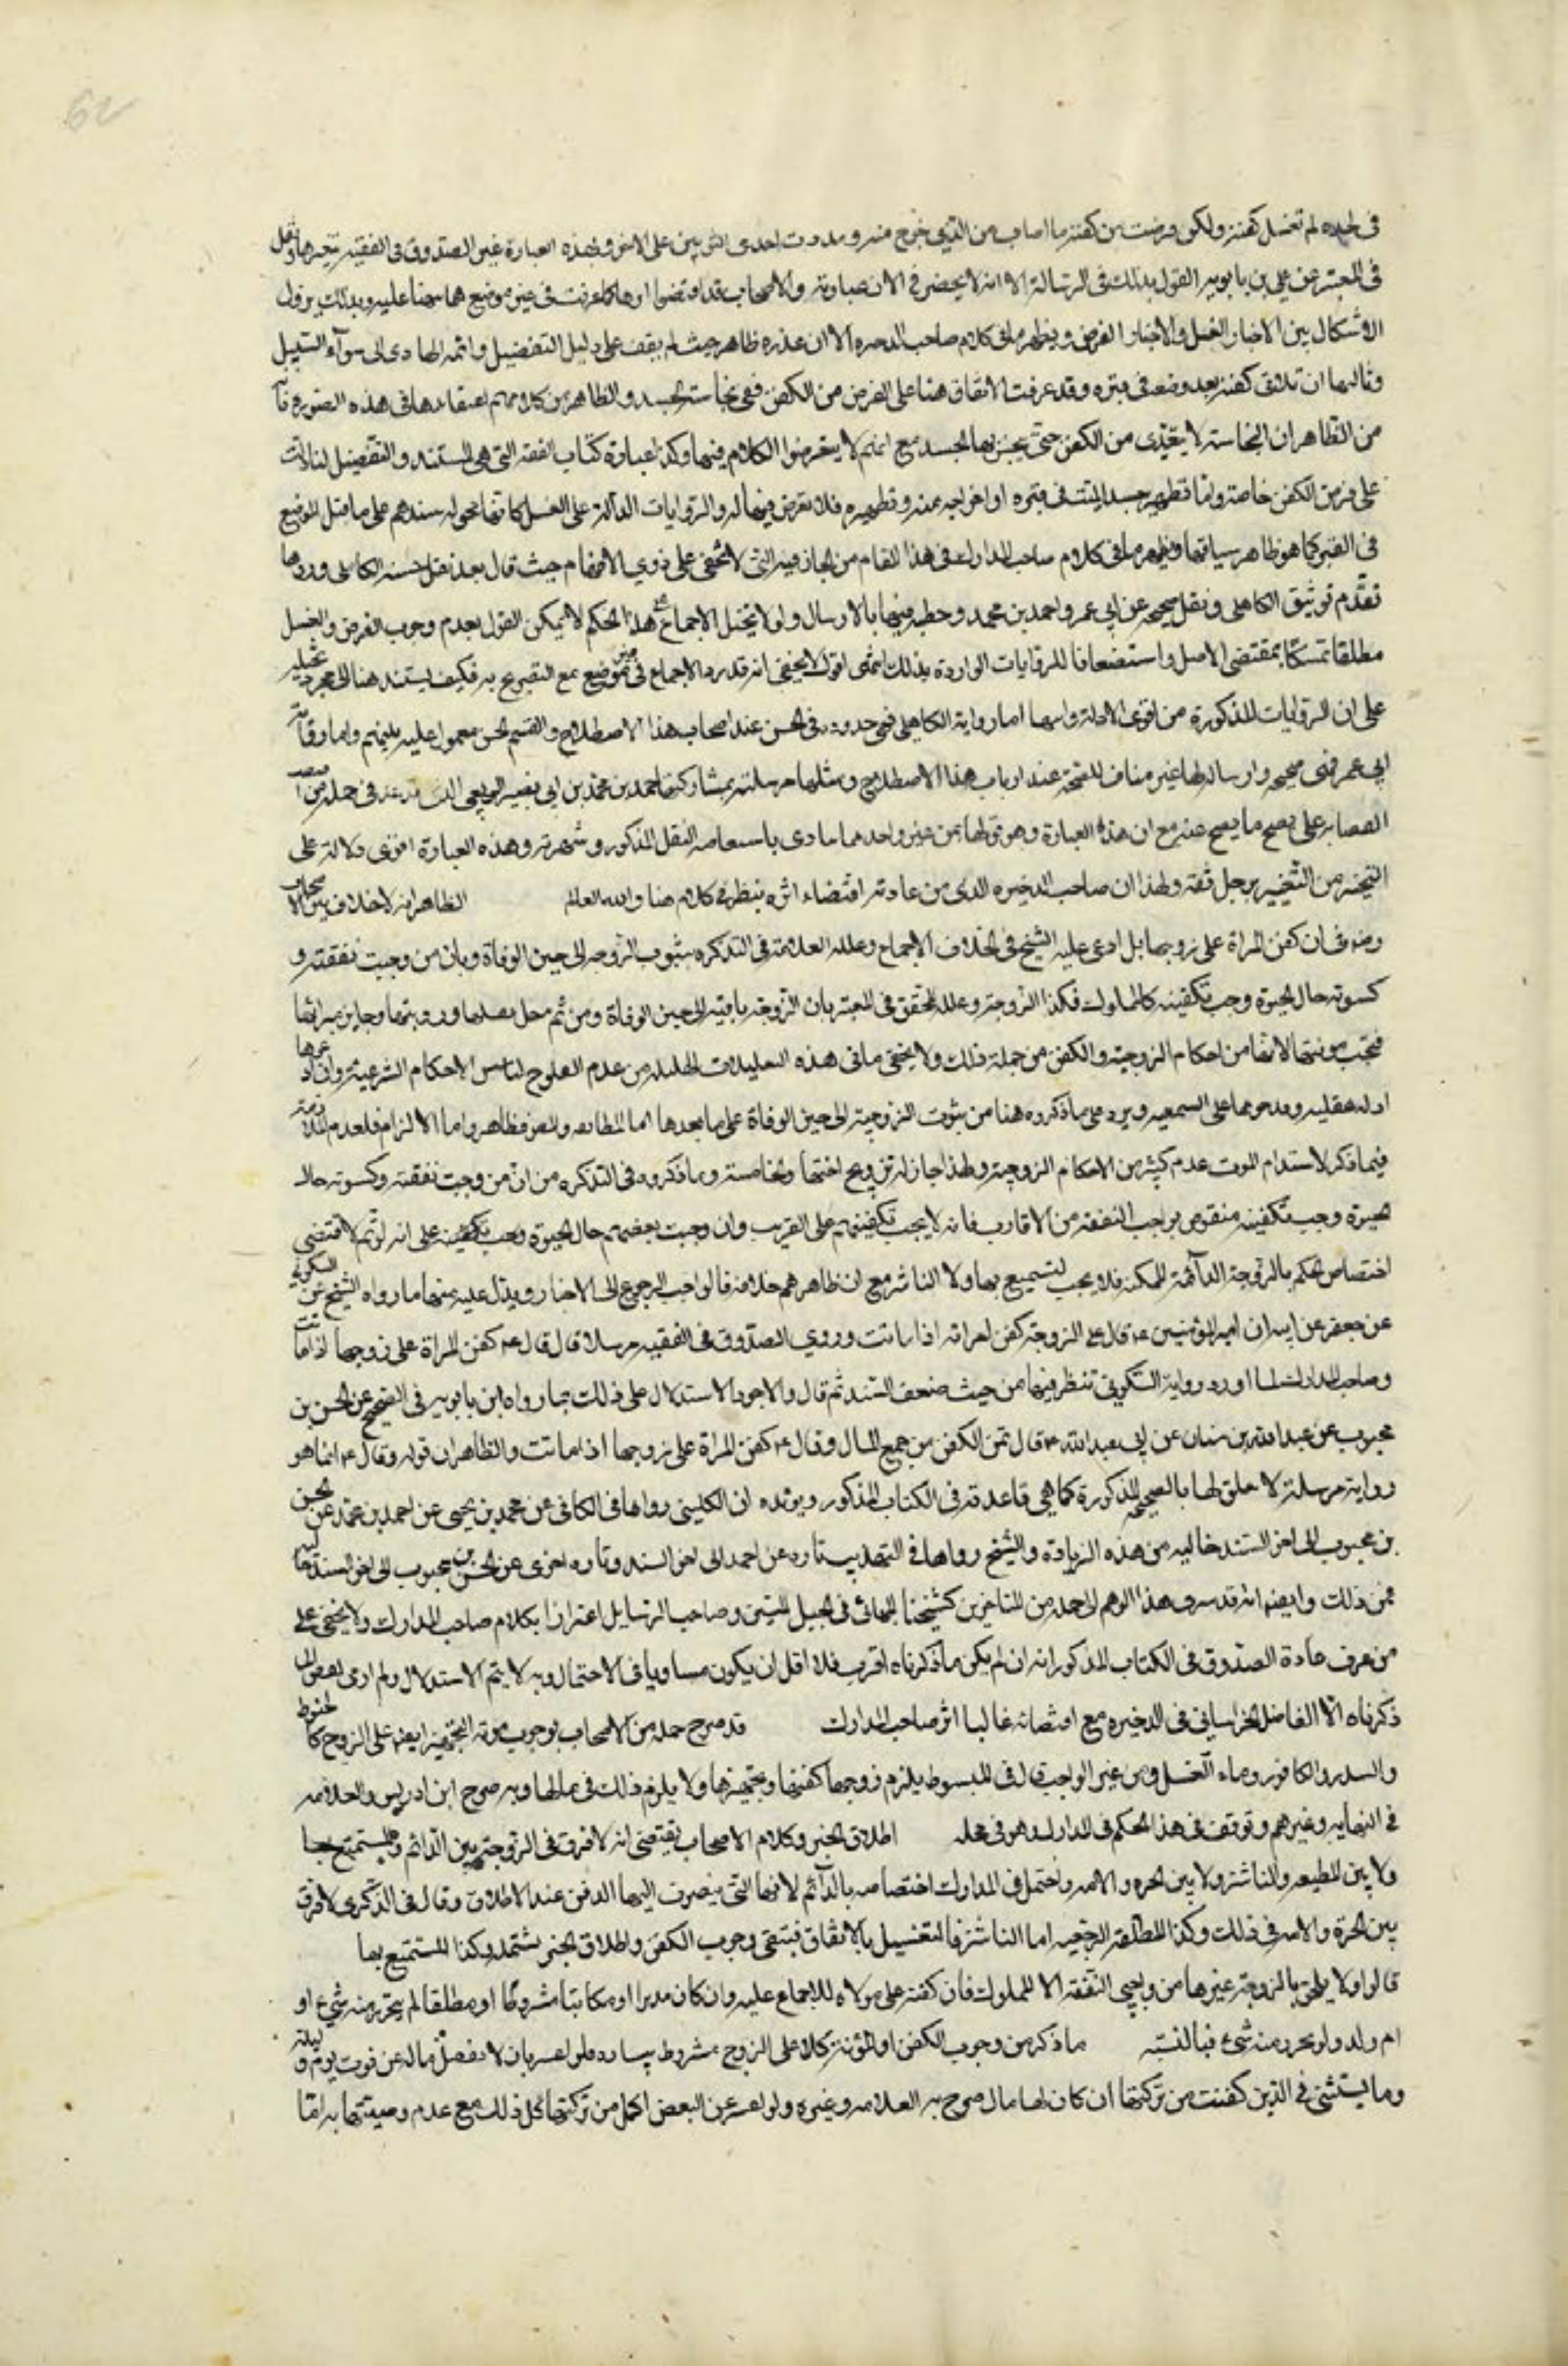 62
في لحده لم تغسل كفنه ولكن قرضت من كفنه ما اصاب من الذي خرج منه ومددت احدى الثوبين على الاخر وبهذه العبارة عبر الصدوق في الفقيه بتغييرها ونقل
في المعتبر عن علي بن بابويه القول بذلك في الرسالة الا انه لا يحضرني الان عبارته والاصحاب قد اقتضوا اثرهما كما عرفت في غير موضع مما نبهنا عليه وبذلك يزول
الاشكال بين الاخبار الغسل والاخبار القرض ويظهر ما في كلام صاحب الذخيره الا ان عذره ظاهر حيث لم يقف على دليل التفضيل والله الهادي الى سوآء السبيل
وثالثها ان تلاقي كفنه بعد وضعه في قبره وقد عرفت الاتفاق هنا على القرض من الكفن ففي نجاسة الجسد والظاهر من كلامهم في هذه الصورة
من الظاهر ان النجاسة لا يتعدى من الكفن حتى ينجس بها الجسد مع انهم لا يتعرضوا الكلام فيها وكذا عبارة كتاب الفقه التي هي المستند والتفصيل انما دلت
على قرض الكفن خاصة واما تطهير جسد الميت في قبره او اخراجه منه وتطهيره فلا تعرض فيها له والروايات الدالة على الغسل كانما محموله سندهم على ما قبل الوضع
في القبر كما هو ظاهر سياقها ويظهر ما في كلام صاحب المدارك في هذا المقام من المجازفة التي لا تخفى على ذوي الافهام حيث قال بعد نقل حسنة الكاهلي ورد بما
تقدم توثيق الكاهلي ونقل صحيحه عن ابي عمير واحمد بن محمد وخطيه فيها بالارسال ولولا تخيل الاجماع على هذا الحكم لامكن القول بعدم وجوب القرض والغسل
مطلقا تمسكا بمقتضى الاصل واستضعافا للروايات الواردة بذلك انتهى اقول لا يخفى انه قد رد الاجماع في غير موضع مع التصريح به فكيف يستند هنا الى مجرد تخيله
على ان الروايات المذكورة من اقوى الادلة واما رواية الكاهلي فهي حديثه في الحسن عند اصحاب هذا الاصطلاح والقسم الحسن معمول عليه بينهم واما رواية
ابي عمير فهي صحيحه وارسالها غير مناف للصحة عند ارباب هذا الاصطلاح ومثلها مرسلته بمشاركتها احمد بن محمد بن ابي نصير الذي قد عد في جملة من
العصابه على تصحيح ما يصح عنه مع ان هذه العبارة وهو قولهما عن غير واحد مما ينادى باستفاضة النقل المذكور وشهرته وهذه العبارة اقوى دلالة على
الصحة من التعبير برجل ثقة ولهذا ان صاحب الذخيره الذي من عادته اقتضاء اثره ينظر في كلامه هنا والله العالم الظاهر انه لا خلاف بين الاصحاب
رض في ان كفن المراة على زوجها بل ادعى عليه الشيخ في الخلاف الاجماع وعلله العلامة في التذكره بثبوت الزوجيه الى حين الوفاة وبان من وجبت نفقته و
كسوته حال الحيوة وجب تكفينه كالمملوك فكذا الزوجة وعلله المحقق في المعتبر بان الزوجة باقية الى حين الوفاة ومن ثم حل تغسيلها ورويتها وجاز ميراثها
فتجب مونتها لانها من احكام الزوجية والكفن من جملة ذلك ولا يخفى ما في هذه التعليلات العليله من عدم الصلوح لتاسيس الاحكام الشرعية وان
ادله عقليه وقدموها على السمعيه ويرد على ما ذكروه هنا من ثبوت الزوجية الى حين الوفاة على ما بعدها اما المطابقه والتضمن فظاهر واما الالتزام فلعدم الملازمة
فيما ذكر لاستدام الموت عدم كثير من الاحكام الزوجية ولهذا جاز له تزويج اختها والخامسة وما ذكروه في التذكره من ان من وجبت نفقته وكسوته حال
الحيوة وجب تكفينه منقوض بواجب النفقة من الاقارب فانه لا يجب تكفينهم على القريب وان وجبت نفقتهم حال الحيوة وجب تكفينه على انه لو تم لاقتضى
اختصاص الحكم بالزوجة الدآئمة الممكنة فلا يجب لتمتع بها ولا الناشز مع ان ظاهرهم خلافه فالواجب الرجوع الى الاخبار ويدل عليه منها ما رواه الشيخ عن السكوني
عن جعفر عن ابيه ان امير المؤمنين ع قال على الزوج كفن امراته اذا ماتت وروى الصدوق في الفقيه مرسلا قال قال ع كفن المراة على زوجها اذا ماتت
وصاحب المدارك لما اورد رواية السكوني تنظر فيها من حيث ضعف السند ثم قال والاجود الاستدلال على ذلك بما رواه ابن بابويه في الصحيح عن الحسن بن
محبوب عن عبدالله بن سنان عن ابي عبدالله ع قال ثمن الكفن من جميع المال وقال ع كفن المراة على زوجها اذا ماتت والظاهر ان قوله وقال ع انما هو
رواية مرسلة لا تعلق لها بالصحيحة المذكورة كما هي قاعدته في الكتاب المذكور ويؤيده ان الكليني رواها في الكافي عن محمد بن يحيى عن احمد بن محمد عن الحسن
بن محبوب الى اخر السند خاليه من هذه الزيادة والشيخ رواها في التهذيب تارة عن احمد الى اخر السند وتارة اخرى عن الحسن بن محبوب الى اخر السند خاليه
عن ذلك وايضا انه قد سرى هذا الوهم الى جملة من المتاخرين كشيخنا البهائي في الحبل المتين وصاحب الرسايل اغترارا بكلام صاحب المدارك ولا يخفى على
من عرف عادة الصدوق في الكتاب المذكور انه ان لم يكن ما ذكرناه اقرب فلا اقل ان يكون مساويا في الاحتمال وبه لا يتم الاستدلال ولم ارى
ذكرناه الا الفاضل الخراساني في الذخيره مع اقتصاره غالبا اثر صاحب المدارك قد صرح جمله من الاصحاب بوجوب مونة التجهيز ايضا على الزوج كالحنوط
والسدر والكافور وماء الغسل ومن غير الواجب قال في المبسوط يلزم زوجها كفنها وتجهيزها ولا يلزم ذلك في مالها وبه صرح ابن ادريس والعلامه
في النهايه وغيرهم وتوقف في هذا الحكم في المدارك وهو في محله اطلاق الخبر وكلام الاصحاب يقتضي انه لا فرق في الزوجة بين الدائم والمستمتع بها
ولا بين المطيعه والناشز ولا بين الحره والامه واحتمل في المدارك اختصاصه بالدآئم لانها التي ينصرف اليها الذهن عند الاطلاق وقال في الذكرى لا فرق
بين الحرة والامه في ذلك وكذا المطلقة الرجعيه اما الناشز فالتعليل بالانفاق فينتفي وجوب الكفن واطلاق الخبر يشتمله وكذا المستمتع بها
قالوا ولا يلحق بالزوجة غيرها من واجبي النفقة الا المملوك فان كفنه على مولاه للاجماع عليه وان كان مدبرا او مكاتبا مشروطا او مطلقا لم يتحرر منه شيء او
ام ولد ولو تحرر منه شيء فبالنسبة ما ذكر من وجوب الكفن او المؤنة كلا على الزوج مشروط بيساره فلو اعسر بان لا يفضل ماله عن قوت يوم وليلة
وما يستثنى في الدين كفنت من تركتها ان كان لها مال صرح به العلامه وغيره ولو اعسر عن البعض اكمل من تركتها كل ذلك مع عدم وصيتها به اما